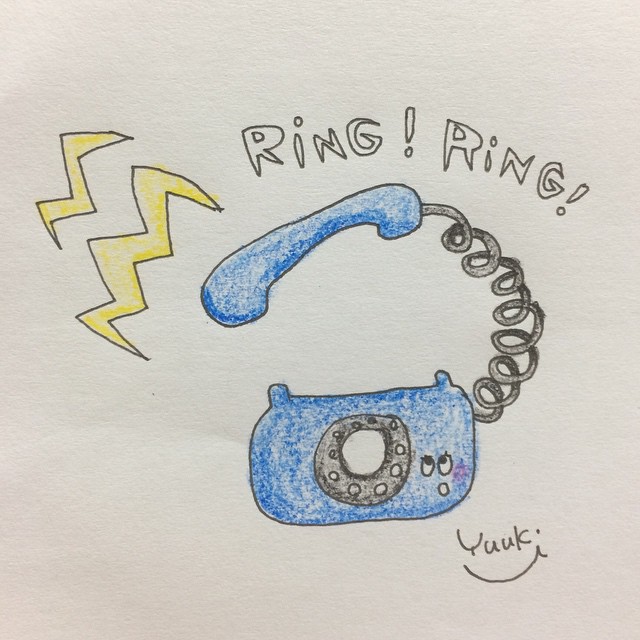 RiNG! RiNG!
Yuuki